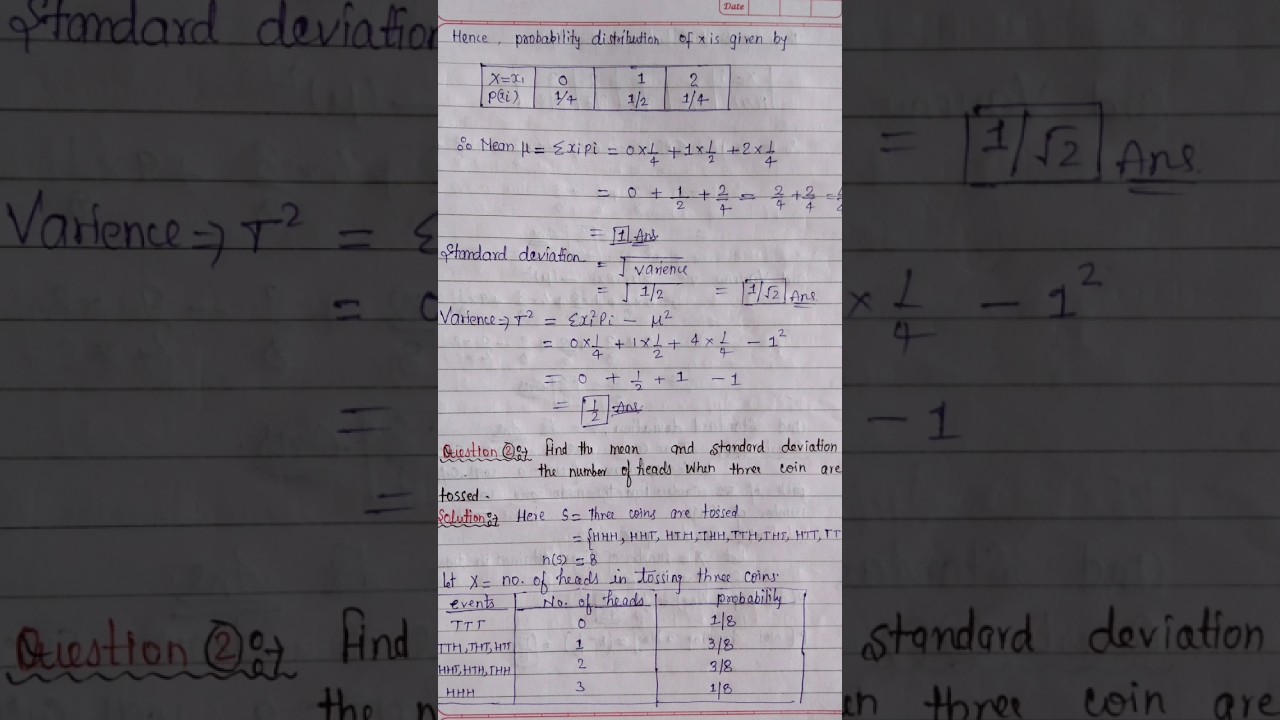 Date
Hence, probability distribution of x is given by
X=xi 0 1 2
P(xi) 1/4 1/2 1/4
∴ Mean μ = Σxipi = 0×1/4 + 1×1/2 + 2×1/4
= 0 + 1/2 + 2/4 = 2/4 + 2/4 =
= 1 Ans
Standard deviation = √varience
= √1/2 = 1/√2 Ans
Varience → T² = Σxi²Pi − μ²
= 0×1/4 + 1×1/2 + 4×1/4 − 1²
= 0 + 1/2 + 1 − 1
= 1/2 Ans
Question ②:→ Find the mean and standard deviation
the number of heads when three coin are
tossed.
Solution:→ Here S = three coins are tossed
= {HHH, HHT, HTH, THH, TTH, THT, HTT, TT
n(S) = 8
Let X = no. of heads in tossing three coins.
events No. of heads probability
TTT 0 1/8
TTH, THT, HTT 1 3/8
HHT, HTH, THH 2 3/8
HHH 3 1/8
Standard deviation
Varience → T² = Σ
= 0
=
=
Question ②:→ Find
the m
= 1/√2 Ans
× 1/4 − 1²
− 1
standard deviation
en three coin are